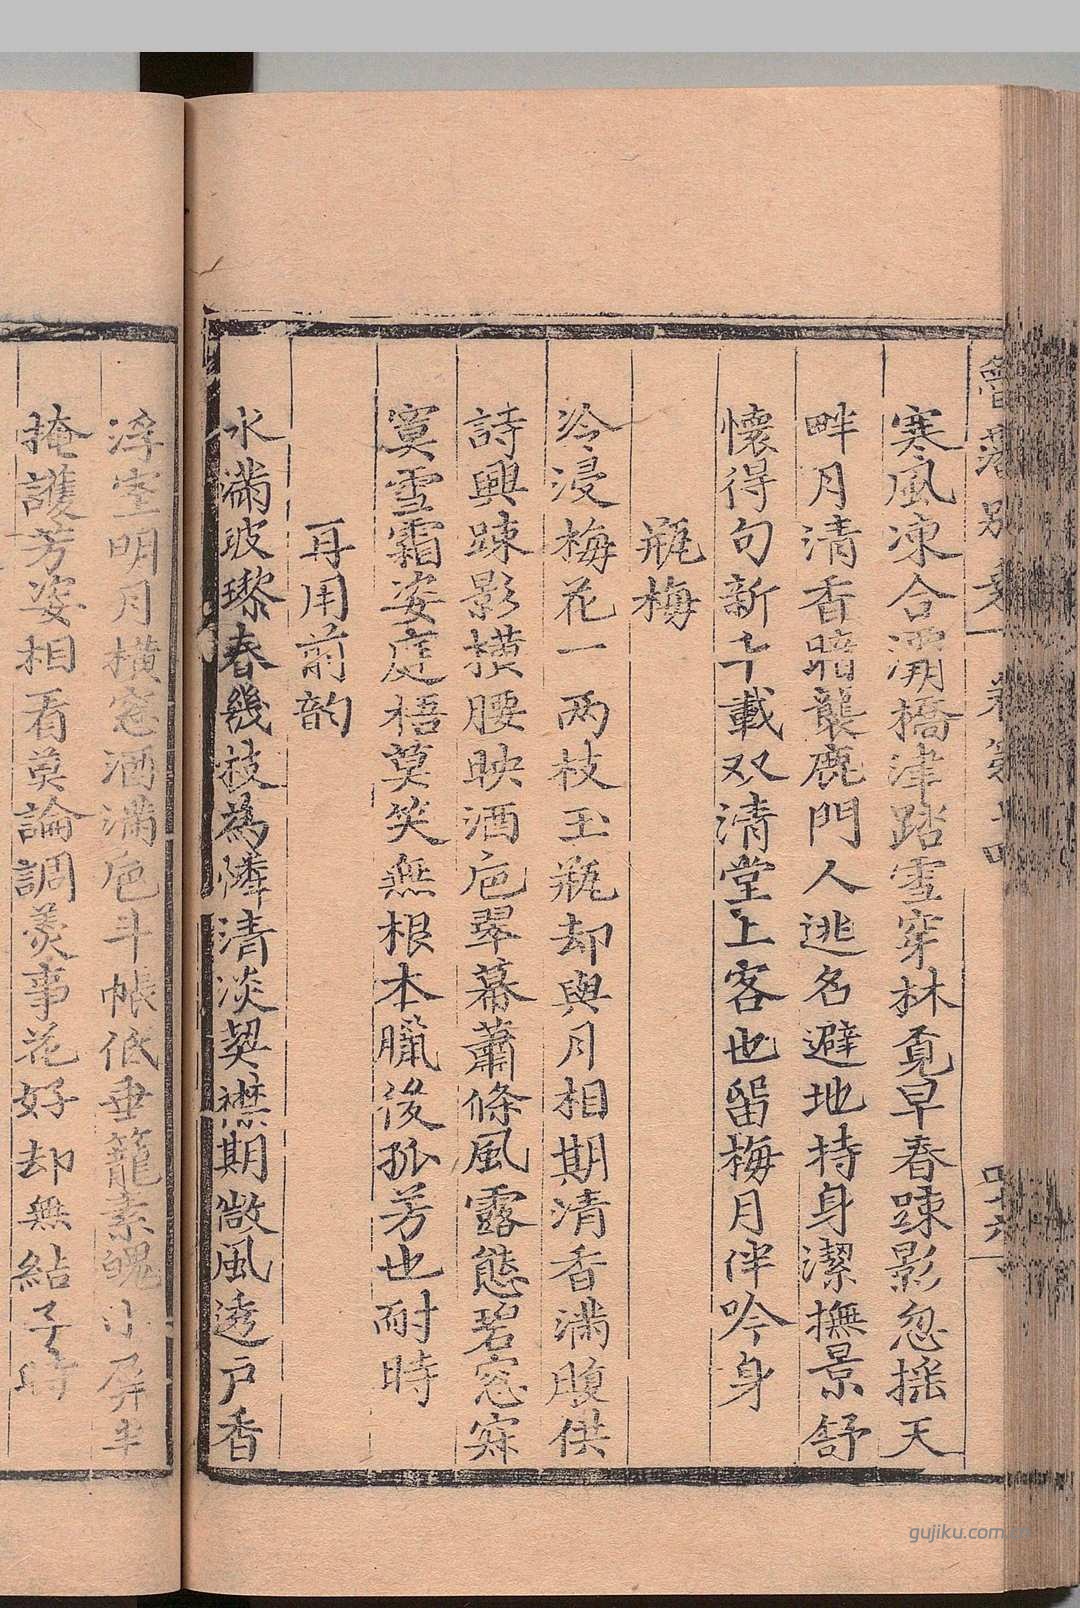 寒風凍合灞橋津踏雪穿林覔早春踈影忽揺天
畔月清香暗襲鹿門人逃名避地持身潔撫景舒
懷得句新千載双清堂上客也留梅月伴吟身
瓶梅
冷浸梅花一两枝玉瓶却與月相期清香满腹供
詩興踈影横腰映酒巵翠幕蕭條風露態碧窓寂
寞雪霜姿庭梧莫笑無根本臘後孤芳也耐時
再用前韵
水满玻瓈春幾技為隣清淡契襟期敞風透户香
浮室明月横窓酒满巵斗帳低垂籠素魄小屏半
掩護芳姿相看莫論調羮事花好却無結子時
gujiku.com